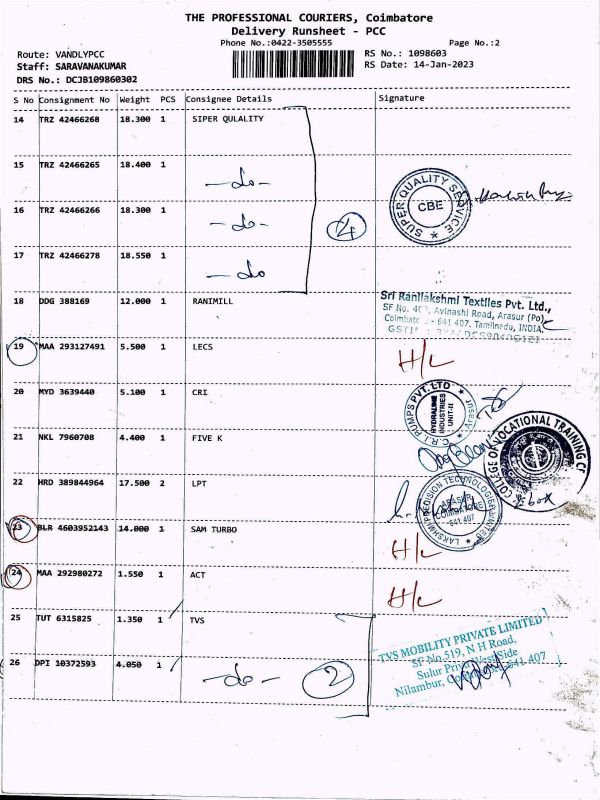 THE PROFESSIONAL COURIERS, Coimbatore
Delivery Runsheet - PCC
Phone No.:0422-3505555 Page No.:2
Route: VANDLYPCC RS No.: 1098603
Staff: SARAVANAKUMAR RS Date: 14-Jan-2023
DRS No.: DCJB109860302
S No Consignment No Weight PCS Consignee Details Signature
14 TRZ 42466268 18.300 1 SIPER QULALITY
15 TRZ 42466265 18.400 1 -do-
SUPER QUALITY SERVICE
CBE
16 TRZ 42466266 18.300 1 -do- 4
17 TRZ 42466278 18.550 1 -do
18 DDG 388169 12.000 1 RANIMILL
Sri Ranilakshmi Textiles Pvt. Ltd.,
Avinashi Road, Arasur (Po)
641 407. Tamilnadu, INDIA.
19 MAA 293127491 5.500 1 LECS H/c
20 MYD 3639440 5.100 1 CRI
C.R.I PUMPS PVT. LTD
HYDRALINE
INDUSTRIES
UNIT-II
21 NKL 7960708 4.400 1 FIVE K
COLLEGE OF VOCATIONAL TRAINING
22 HRD 389844964 17.500 2 LPT
LAKSHMI PRECISION TECHNOLOGIES LIMITED
ARASUR
COIMBATORE
641 407
23 BLR 4603952143 14.000 1 SAM TURBO H/c
24 MAA 292980272 1.550 1 ACT H/c
25 TUT 6315825 1.350 1 TVS
26 DPI 10372593 4.050 1 -do- 2
TVS MOBILITY PRIVATE LIMITED
SF No.519, N H Road,
Sulur Privu West Side
Nilambur, 641 407